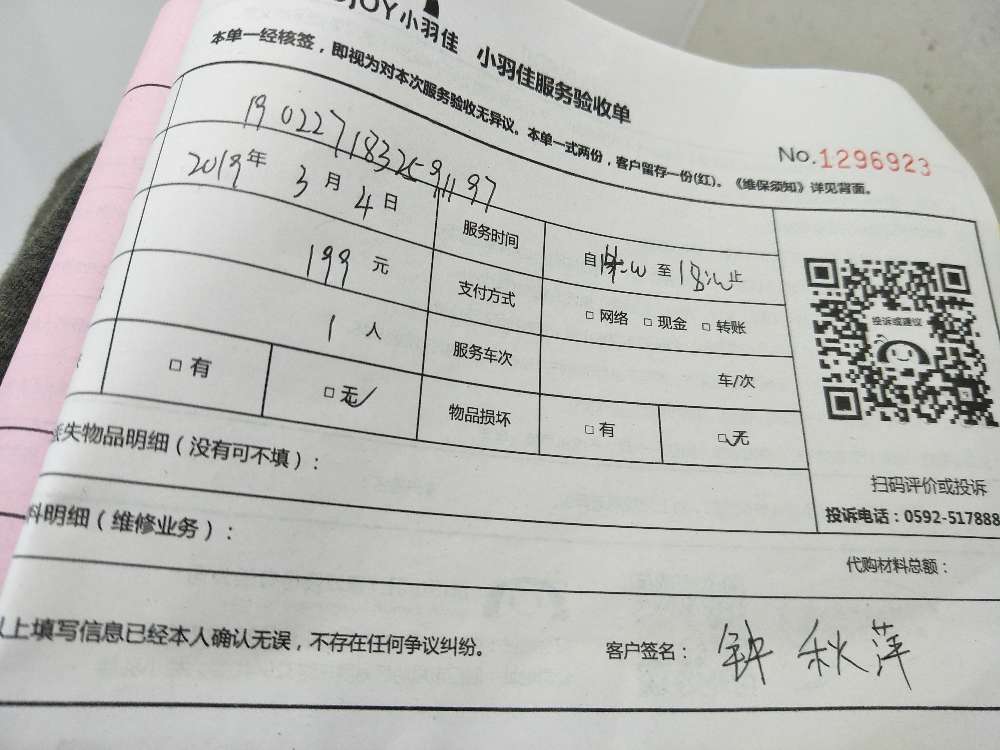 小羽佳 小羽佳服务验收单
本单一经核签，即视为对本次服务验收无异议。本单一式两份，客户留存一份(红)。《维保须知》详见背面。
No.1296923
2019年 3月 4日 服务时间 自 至 止
199 元 支付方式 □ 网络 □ 现金 □ 转账
1 人 服务车次 车/次
□ 有 □ 无 物品损坏 □ 有 □ 无
失物品明细（没有可不填）：
扫码评价或投诉
投诉或建议
投诉电话：0592-517888
料明细（维修业务）：
代购材料总额：
以上填写信息已经本人确认无误，不存在任何争议纠纷。 客户签名： 钟秋萍